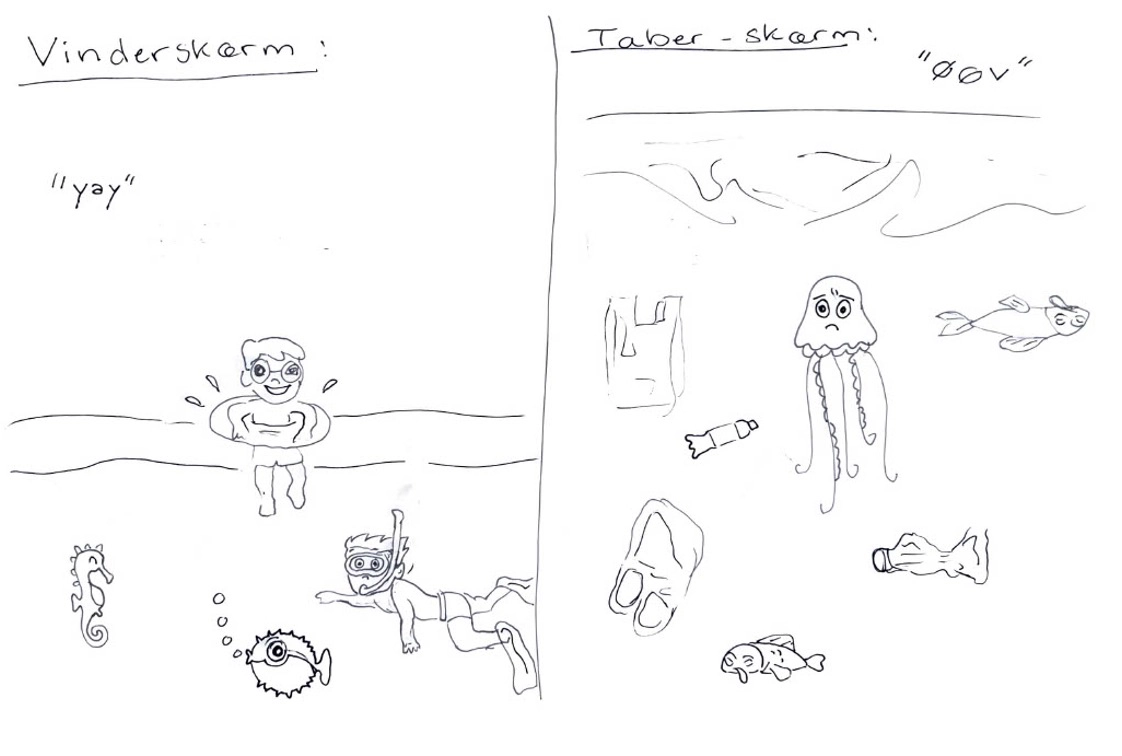 Vinderskærm:
"yay"
Taber-skærm:
"øøv"